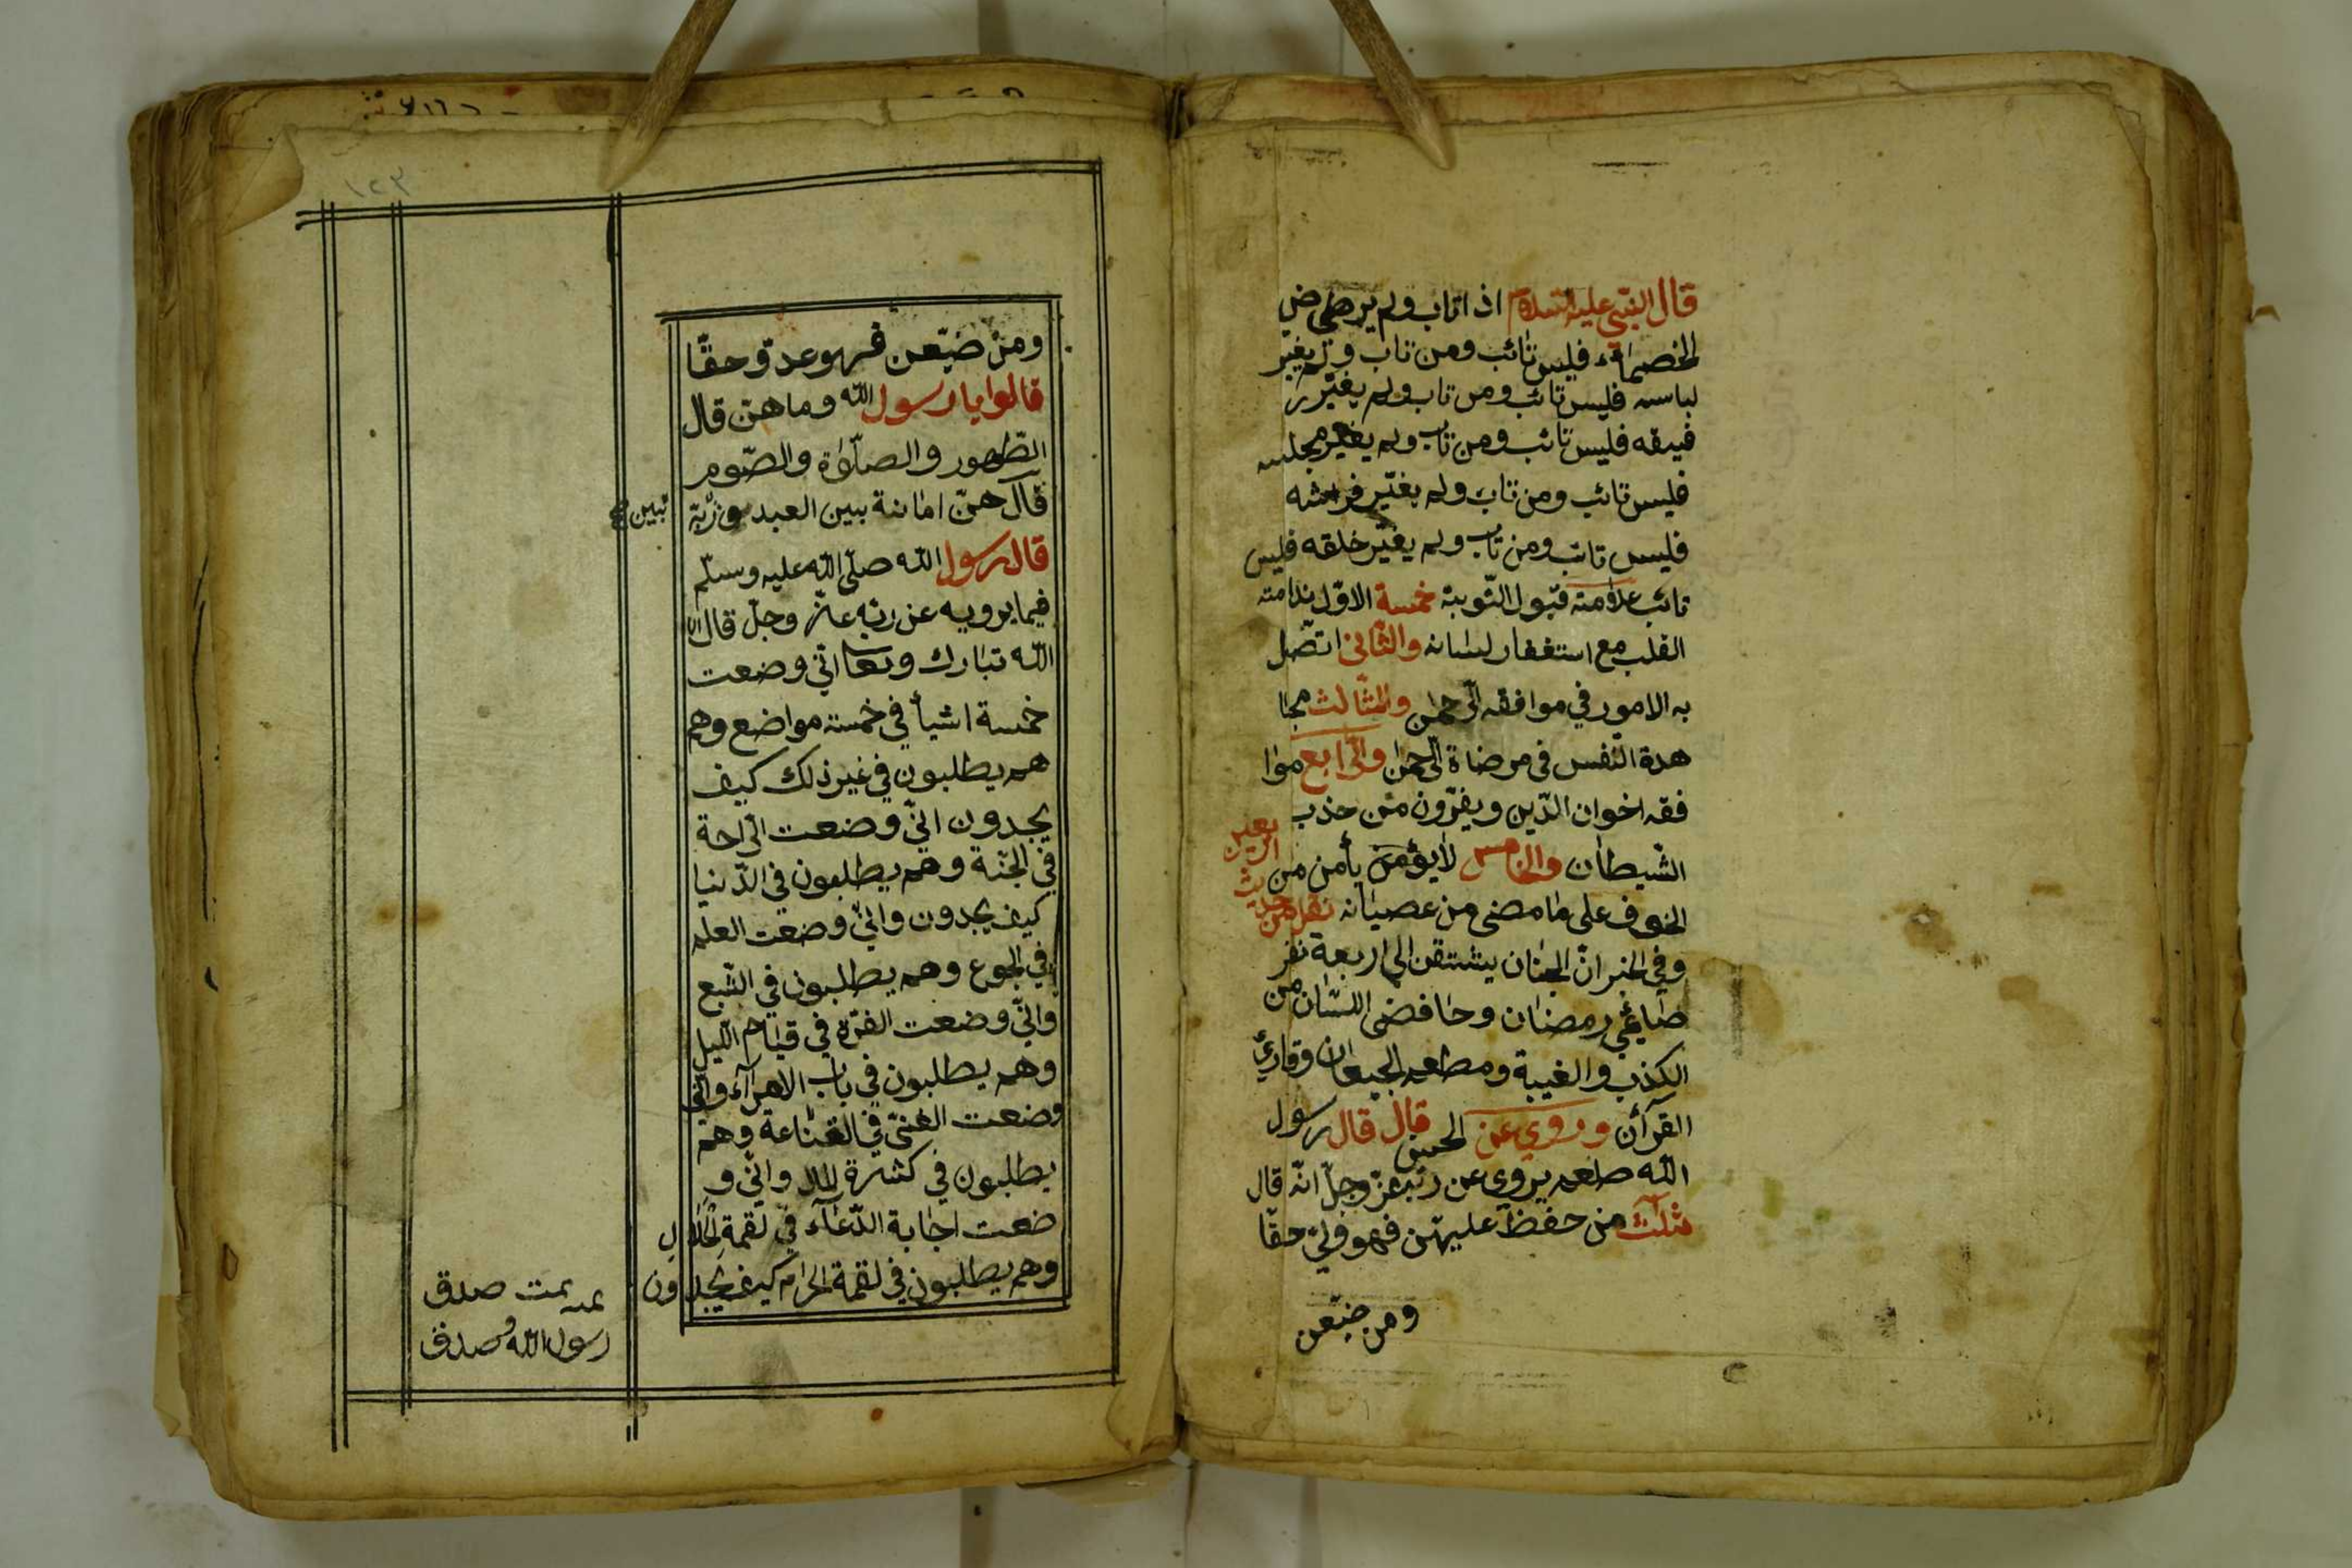 قال النبي عليه السلام اذا تاب ولم يرضي
الخصماء فليس تائب ومن تاب ولم يغير
لباسه فليس تائب ومن تاب ولم يغير ر
فيقه فليس تائب ومن تاب ولم يغير مجلسه
فليس تائب ومن تاب ولم يغير فراشه
فليس تائب ومن تاب ولم يغير خلقه فليس
تائب علامته قبول التوبة خمسة الاول ندامته
القلب مع استغفار لسانه والثاني اتصل
به الامور في موافقه الرحمن والثالث مجا
هدة النفس في مرضاة الرحمن والرابع موا
فقه اخوان الدين ويفرون من حذب
الشيطان والخامس لايؤمن يأمن من
الخوف على ما مضى من عصيانه نقل من حديث
وفي الخبر ان الجنان يشتقن الى اربعة نفر
صائمي رمضان وحافضى اللسان من
الكذب والغيبة ومطعم الجيعان وقارئ
القرآن وروي عن الحسن قال قال رسول
الله صلعم يروي عن ربه عز وجل انه قال
ثلث من حفظ عليهن فهو ولي حقا
ومن ضيعن
ومن ضيعن فهو عدو حقا
قالوا يا رسول الله وما هن قال
الطهور والصلوة والصوم
قال هن امانة بين العبد وربه
قال رسول الله صلى الله عليه وسلم
فيما يرويه عن ربه عز وجل قال
الله تبارك وتعا اني وضعت
خمسة اشيأ في خمسة مواضع وهم
هم يطلبون في غير ذلك كيف
يجدون اني وضعت الراحة
في الجنة وهم يطلبون في الدنيا
كيف يجدون واني وضعت العلم
في الجوع وهم يطلبون في الشبع
واني وضعت الغرة في قيام الليل
وهم يطلبون في باب الامرآء واني
وضعت الغنى في القناعة وهم
يطلبون في كثرة المال واني و
ضعت اجابة الدعآء في لقمة الحلال
وهم يطلبون في لقمة الحرام كيف يجدون
تمت صدق
رسول الله وصدق